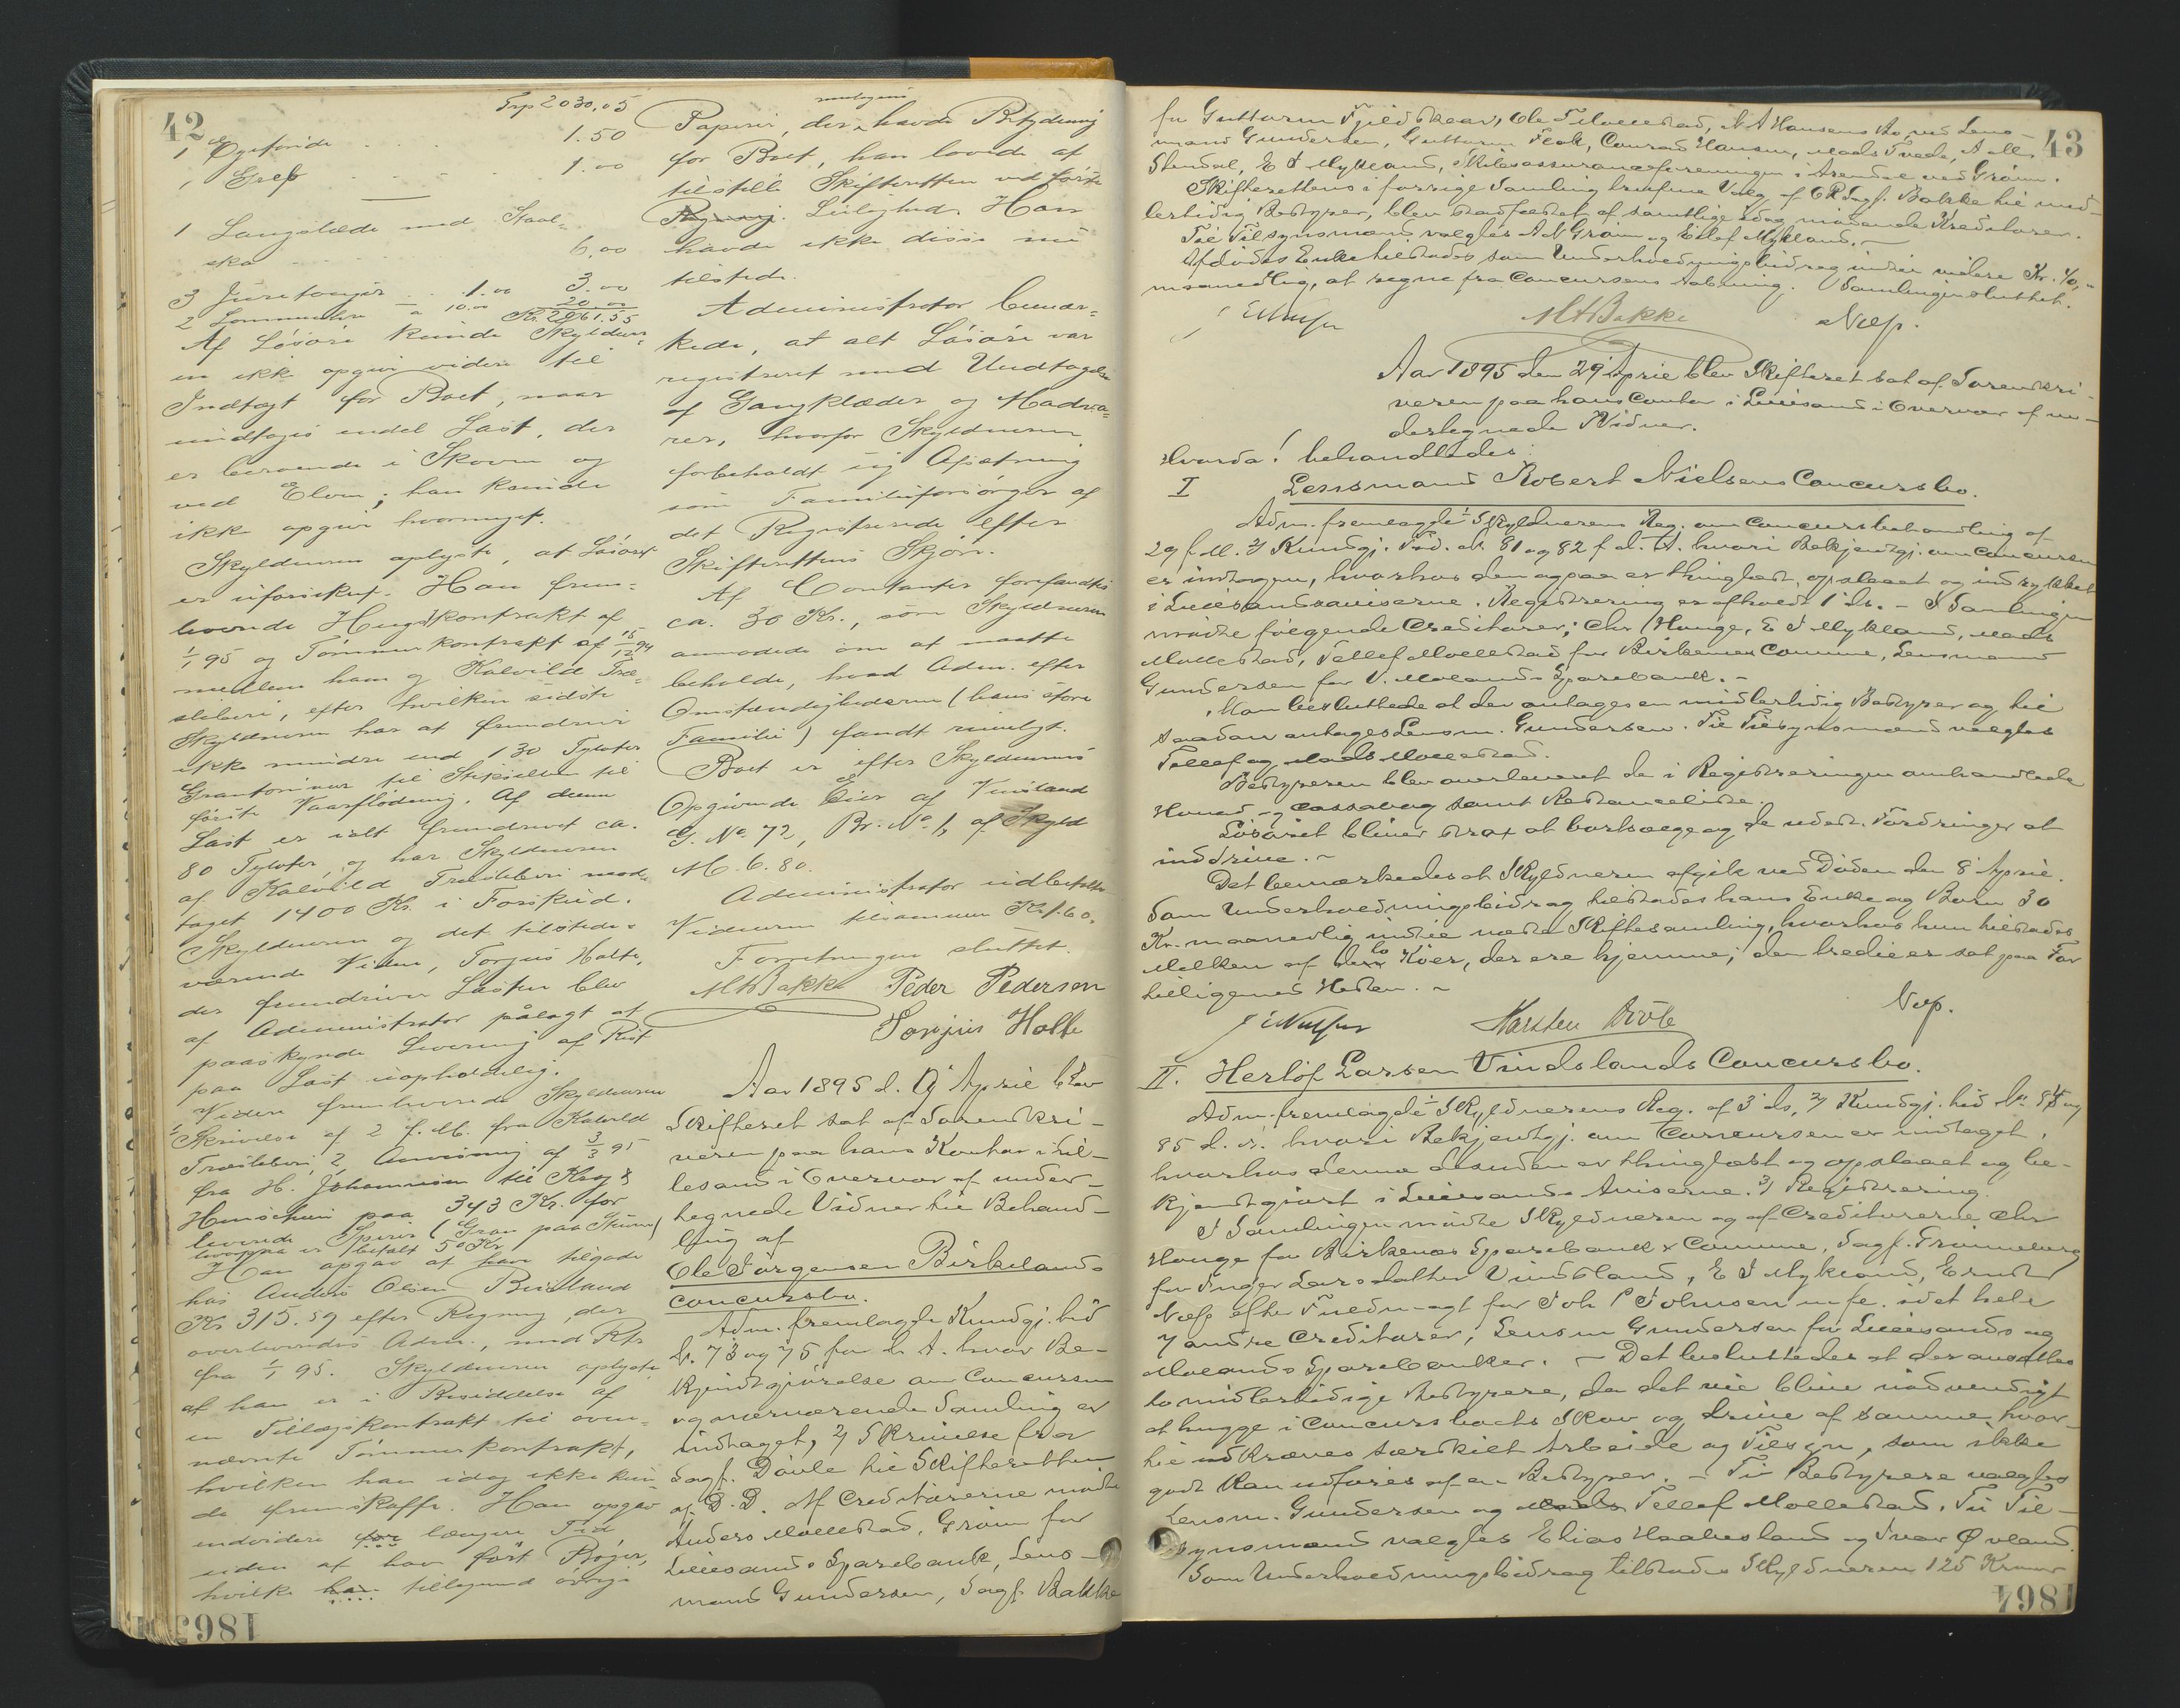 42
Trp 2030.05
1 Øgeforide . . . . 1.50
1 Greb . . . . 1.00
1 Langslæde med Staal-
sko . . . 6.00
3 Jüretonjer . . 1.00 3.00
2 Lommeuhre à 10.00 20.00
Kr. 2061.55
Af Løsøre kunde Skyldner-
en ikke opgive videre til
Indtægt for Boet, naar
undtages endel Last, der
er beroende i Skoven og
ved Elven; han kunde
ikke opgive hvormeget.
Skyldneren oplyste, at Løsøret
er uforsikret. Han frem-
leverede Hugstkontrakt af
1/1 95 og Tømmerkontrakt af 15/12 94
mellem ham og Kalvild Træ-
sliberi, efter hvilken sidste
Skyldneren har at fremdrive
ikke mindre end 130 Tylvter
Grantømmer til Stikjellen til
første Vaarflødning. Af denne
Last er ialt fremdrevet ca.
80 Tylvter, og har Skyldneren
af Kalvild Træsliberi mod-
taget 1400 Kr. i Forskud.
Skyldneren og det tilstede-
værende Vidne, Torjus Holte,
der fremdriver Lasten blev
af Administrator pålagt at
paaskynde Levering af Rest
paa Last uopholdelig.
Videre fremleverede Skyldneren
1 Skrivelse af 2 f. M. fra Kalvild
Træsliberi, 2 Anvisning af 3/3 95
fra H. Johannisen til Kløg &
Henschien paa 343 Kr. for
leverede Spirer (Gran paa Stüm)
hvorpaa er betalt 50 Kr
Han opgav at have tilgode
hos Anders Olsen Beisland
Kr 315.59 efter Regning, der
overleveredes Adm., med Rts
fra 1/1 95. Skyldneren oplyste
at han er i Besiddelse af
en Tillægskontrakt til oven-
nævnte Tømmerkontrakt,
hvilken han idag ikke kun-
de fremskaffe. Han opgav
endvidere for længere Tid
siden at have ført Bøger,
hvilke han tilligemed øvrige
Papirer, der muligens havde Betydning
for Boet, han lovede at
tilstille Skifteretten ved første
Regning. Leilighed. Han
havde ikke disse nu
tilstede.
Administrator bemær-
kede, at alt Løsøre var
registreret med Undtagelse
af Gangklæder og Madva-
rer, hvorfor Skyldneren
forbeholdt sig Afsætning
som Familieforsørger af
det Registrerede efter
Skifterettens Skjøn.
Af Contanter forefandtes
ca. 30 Kr., som Skyldneren
anmodede om at maatte
beholde, hvad Adm. efter
Omstændighederne (hans store
Familie) fandt rimeligt.
Boet er efter Skyldnerens
Opgivende Eier af Vinsland
G. No. 72, Br. No 1, af Skyld
M. 6.80.
Administrator udbetalte
Vidnerne tilsammen Kr 1.60.
Forretningen sluttet.
M A Bakke Peder Pedersen
Torjus Holte
Aar 1895 d. 9 April blev
Skifteret sat af Sorenskri-
veren paa hans Kontor i Lil-
lesand i Overvær af under-
tegnede Vidner til Behand-
ling af
Ole Jørgensen Birkelands
Concursbo.
Adm. fremlagde Kundgj. tid
Nr. 73 og 75 for d. A. hvor Be-
kjendtgjørelse om Concursen
og nærværende Samling er
indtaget, 2) Skrivelse fra
Sagf. Døvle til Skifteretten
af D. D. Af Creditorerne mødte
Anders Mollestad, Grøm for
Lillesands Sparebank, Lens-
mand Gundersen, Sagf. Bakke
43
for Guttorm Fjeldskaar, Ole Tilvellestad, N A Hansens Bo ved Lens-
mand Gundersen, Guttorm Flak, Conrad Hansen, Mads Tvede, A M.
Stendal, E J Mykland, Skibsassuranceforeningen i Arendal ved Grøm.
Skifterettens i forrige Samling trufne Valg af O R Sagf. Bakke til mid-
lertidig Bestyrer, blev stadfæstet af samtlige idag mødende Kreditorer.
Til Tilsynsmænd valgtes A N Grøm og Eilef Mykland.
Afdødes Enke tilstodes som Underholdningsbidrag indtil videre Kr. 40,-
maanedlig, at regne fra Concursens Aabning. Samlingen sluttet.
M A Bakke Nelp.
Aar 1895 den 29 April blev Skifteret sat af Sorenskri-
veren paa hans Contor i Lillesand i Overvær af un-
dertegnede Vidner.
Hvorda! behandledes:
I Lensmand Robert Nielsens Concursbo.
Adm. fremlagde 1) Skyldnerens Beg. om Concursbehandling af
29 f. M. 2) Kundgj. Tid. Nr. 81 og 82 f. d. A. hvori Bekjendtgj. om Concursen
er indtagen, hvorhos den ogsaa er thinglæst, opslaaet og indrykket
i Lillesandsaviserne. Registrering er afholdt 1 ds. - I Samlingen
mødte følgende Creditorer; Chr Hauge, E J Mykland, Mads
Mollestad, Tellef Mollestad for Birkenes Comune, Lensmand
Gundersen for V. Molands Sparebank. -
Man besluttede at der antages en midlertidig Bestyrer og til
saadan antages Lensm. Gundersen. Til Tilsynsmænd valgtes
Tellef og Mads Mollestad.
Bestyreren blev overleveret de i Registreringen omhandlede
Hoved- og Cassabog samt Restanceliste.
Løsøret bliver strax at bortsælge og de udest. Fordringer at
inddrive. -
Det bemærkedes at Skyldneren afgik ved Døden den 8 April.
Som Underholdningsbidrag tilstodes hans Enke og Børn 30
Kr. maanedlig indtil næste Skiftesamling, hvorhos hun tilstodes
Melken af de to Kiør, der ere hjemme; den tredie er sat paa For
hielligemed Hesten. -
Karsten Døvle Nelp.
II. Herlof Larsen Vindslands Concursbo.
Adm. fremlagde 1) Skyldnerens Beg. af 3 ds, 2) Kundgj. tid Nr. 84 og
85 d. A. hvori Bekjendtgj. om Concursen er indtaget,
hvorhos denne desuden er thinglæst og opslaaet og be-
kjendtgjort i Lillesands Aviserne. 3) Registrering.
I Samlingen mødte Skyldneren og af Creditorerne Chr
Hauge for Birkenes Sparebank & Comune, Sagf. Frønneberg
for Inger Larsdatter Vindsland, E J Mykland, Ernst
Nelp efter Fuldmagt for Joh P Johnsen m fl. idet hele
7 andre Creditorer, Lensm Gundersen for Lillesands og
Molands Sparebanker. - Det besluttedes at der ansættes
to midlertidige Bestyrere, da det vil blive nødvendigt
at hugge i Concursboets Skov og drive af samme, hvor-
til udkræves særskilt Arbeide og Tilsyn, som ikke
godt kan udføres af en Bestyrer. - Til Bestyrere valgtes
Lensm. Gundersen og Mads Tellef Mollestad. Til Til-
synsmænd valgtes Elias Haabesland og Ivar Øvland.
Som Underholdningsbidrag tilstodes Skyldneren 125 Kroner
1864